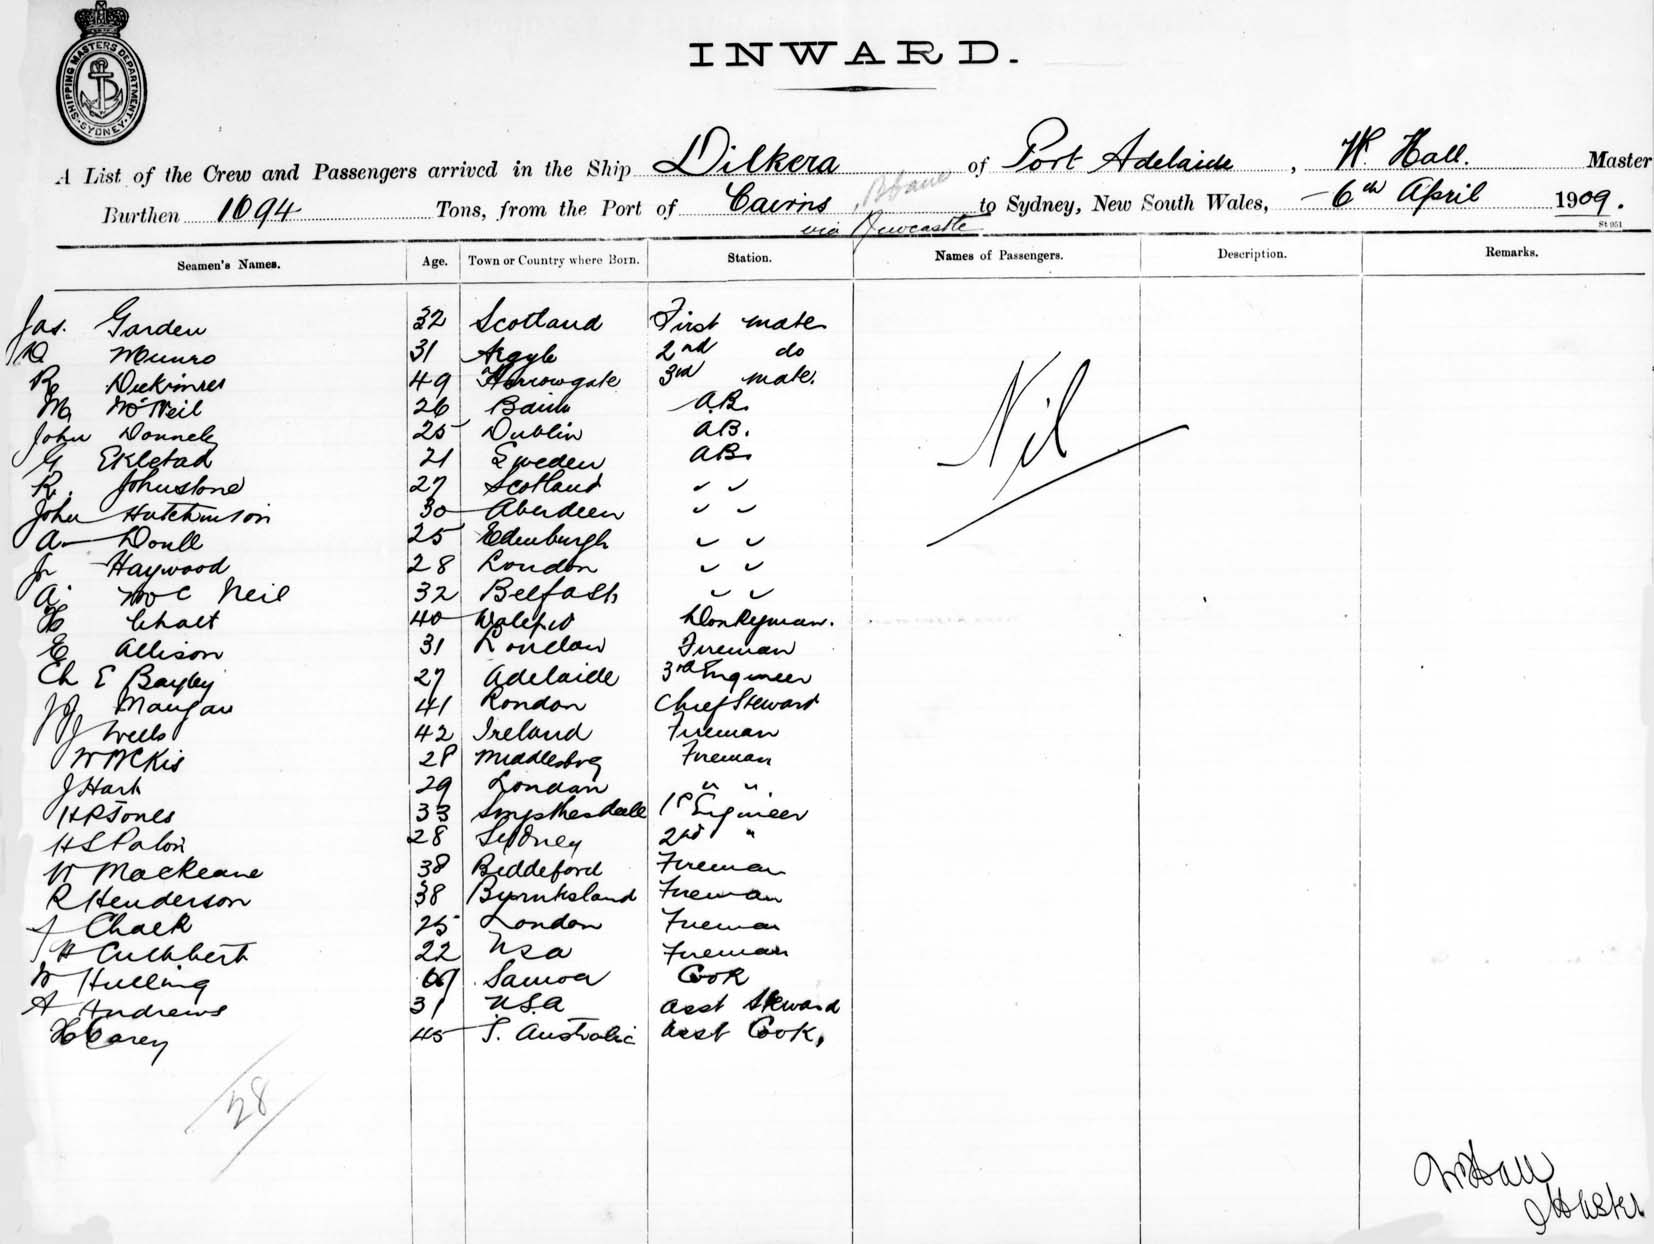 SHIPPING MASTERS DEPARTMENT. SYDNEY.
INWARD.
A List of the Crew and Passengers arrived in the Ship Dilkera of Port Adelaide, W. Hall. Master
Burthen 1094 Tons, from the Port of Cairns, Bbane to Sydney, New South Wales, 6th April 1909.
via Newcastle
St 951
Seamen's Names. Age. Town or Country where Born. Station. Names of Passengers. Description. Remarks.
Jas. Garden 32 Scotland First mate
D Munro 31 Argyle 2nd do
R 49 Harrowgate 3rd mate.
M McNeil 26 A.B.
John Donnely 25 Dublin AB.
G Eklstad 21 Sweden AB.
R. Johnstone 27 Scotland " "
John Hutchinson 30 Aberdeen " "
A Doull 25 Edenburgh " "
Jn Haywood 28 London " "
A. McNeil 32 Belfast " "
H 40 Donkeyman.
E Allison 31 London Fireman
Ch E Bayley 27 Adelaide 3rd Engineer
JJ Mangan 41 London Chief Steward
J Wells 42 Ireland Fireman
W 28 Middlesbrg Fireman
J Hark 29 London " "
HR Jones 33 Smythesdale 1st Engineer
HS 28 Sydney 2nd "
W MacKeane 38 Beddeford Fireman
R Henderson 38 Fireman
J Chalk 25 London Fireman
H Cuthbert 22 USA Fireman
W Hulling Samoa Cook
A Andrews 31 U.S.A Asst Steward
H Carey 45 S. Australia Asst Cook,
Nil
28
W Hall
Master